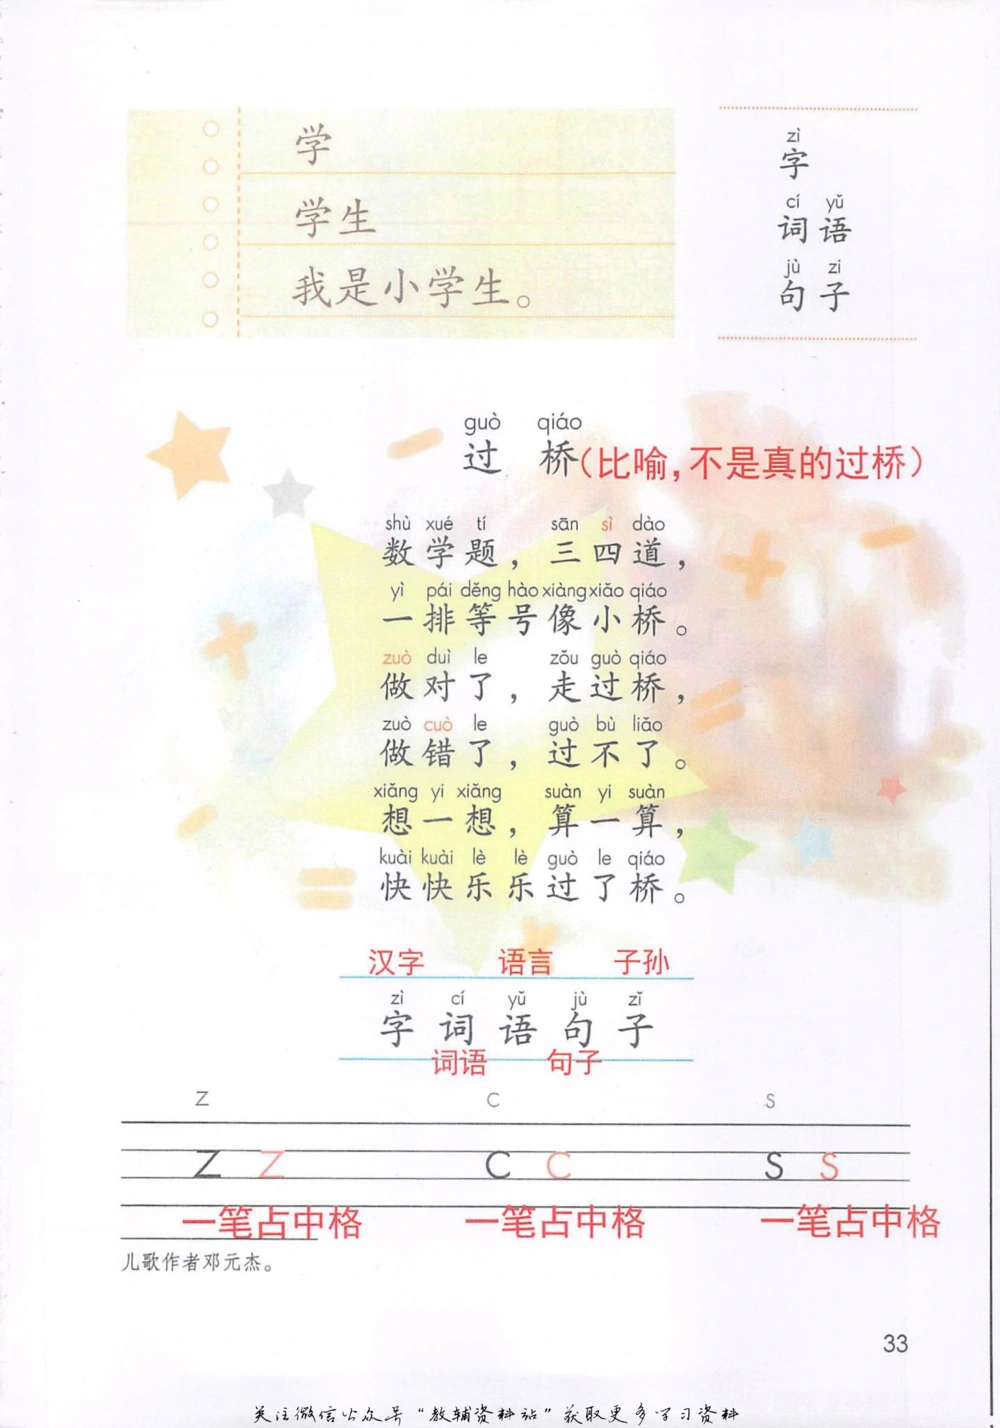 学
学生
我是小学生。
zì
字
cí yǔ
词语
jù zi
句子
guò qiáo
过 桥(比喻,不是真的过桥)
shù xué tí sān sì dào
数学题，三四道，
yì pái děng hào xiàng xiǎo qiáo
一排等号像小桥。
zuò duì le zǒu guò qiáo
做对了，走过桥，
zuò cuò le guò bù liǎo
做错了，过不了。
xiǎng yi xiǎng suàn yi suàn
想一想，算一算，
kuài kuài lè lè guò le qiáo
快快乐乐过了桥。
汉字 语言 子孙
zì cí yǔ jù zǐ
字 词 语 句 子
词语 句子
z c s
z z c c s s
一笔占中格 一笔占中格 一笔占中格
儿歌作者邓元杰。
33
关注微信公众号“教辅资料站”获取更多学习资料